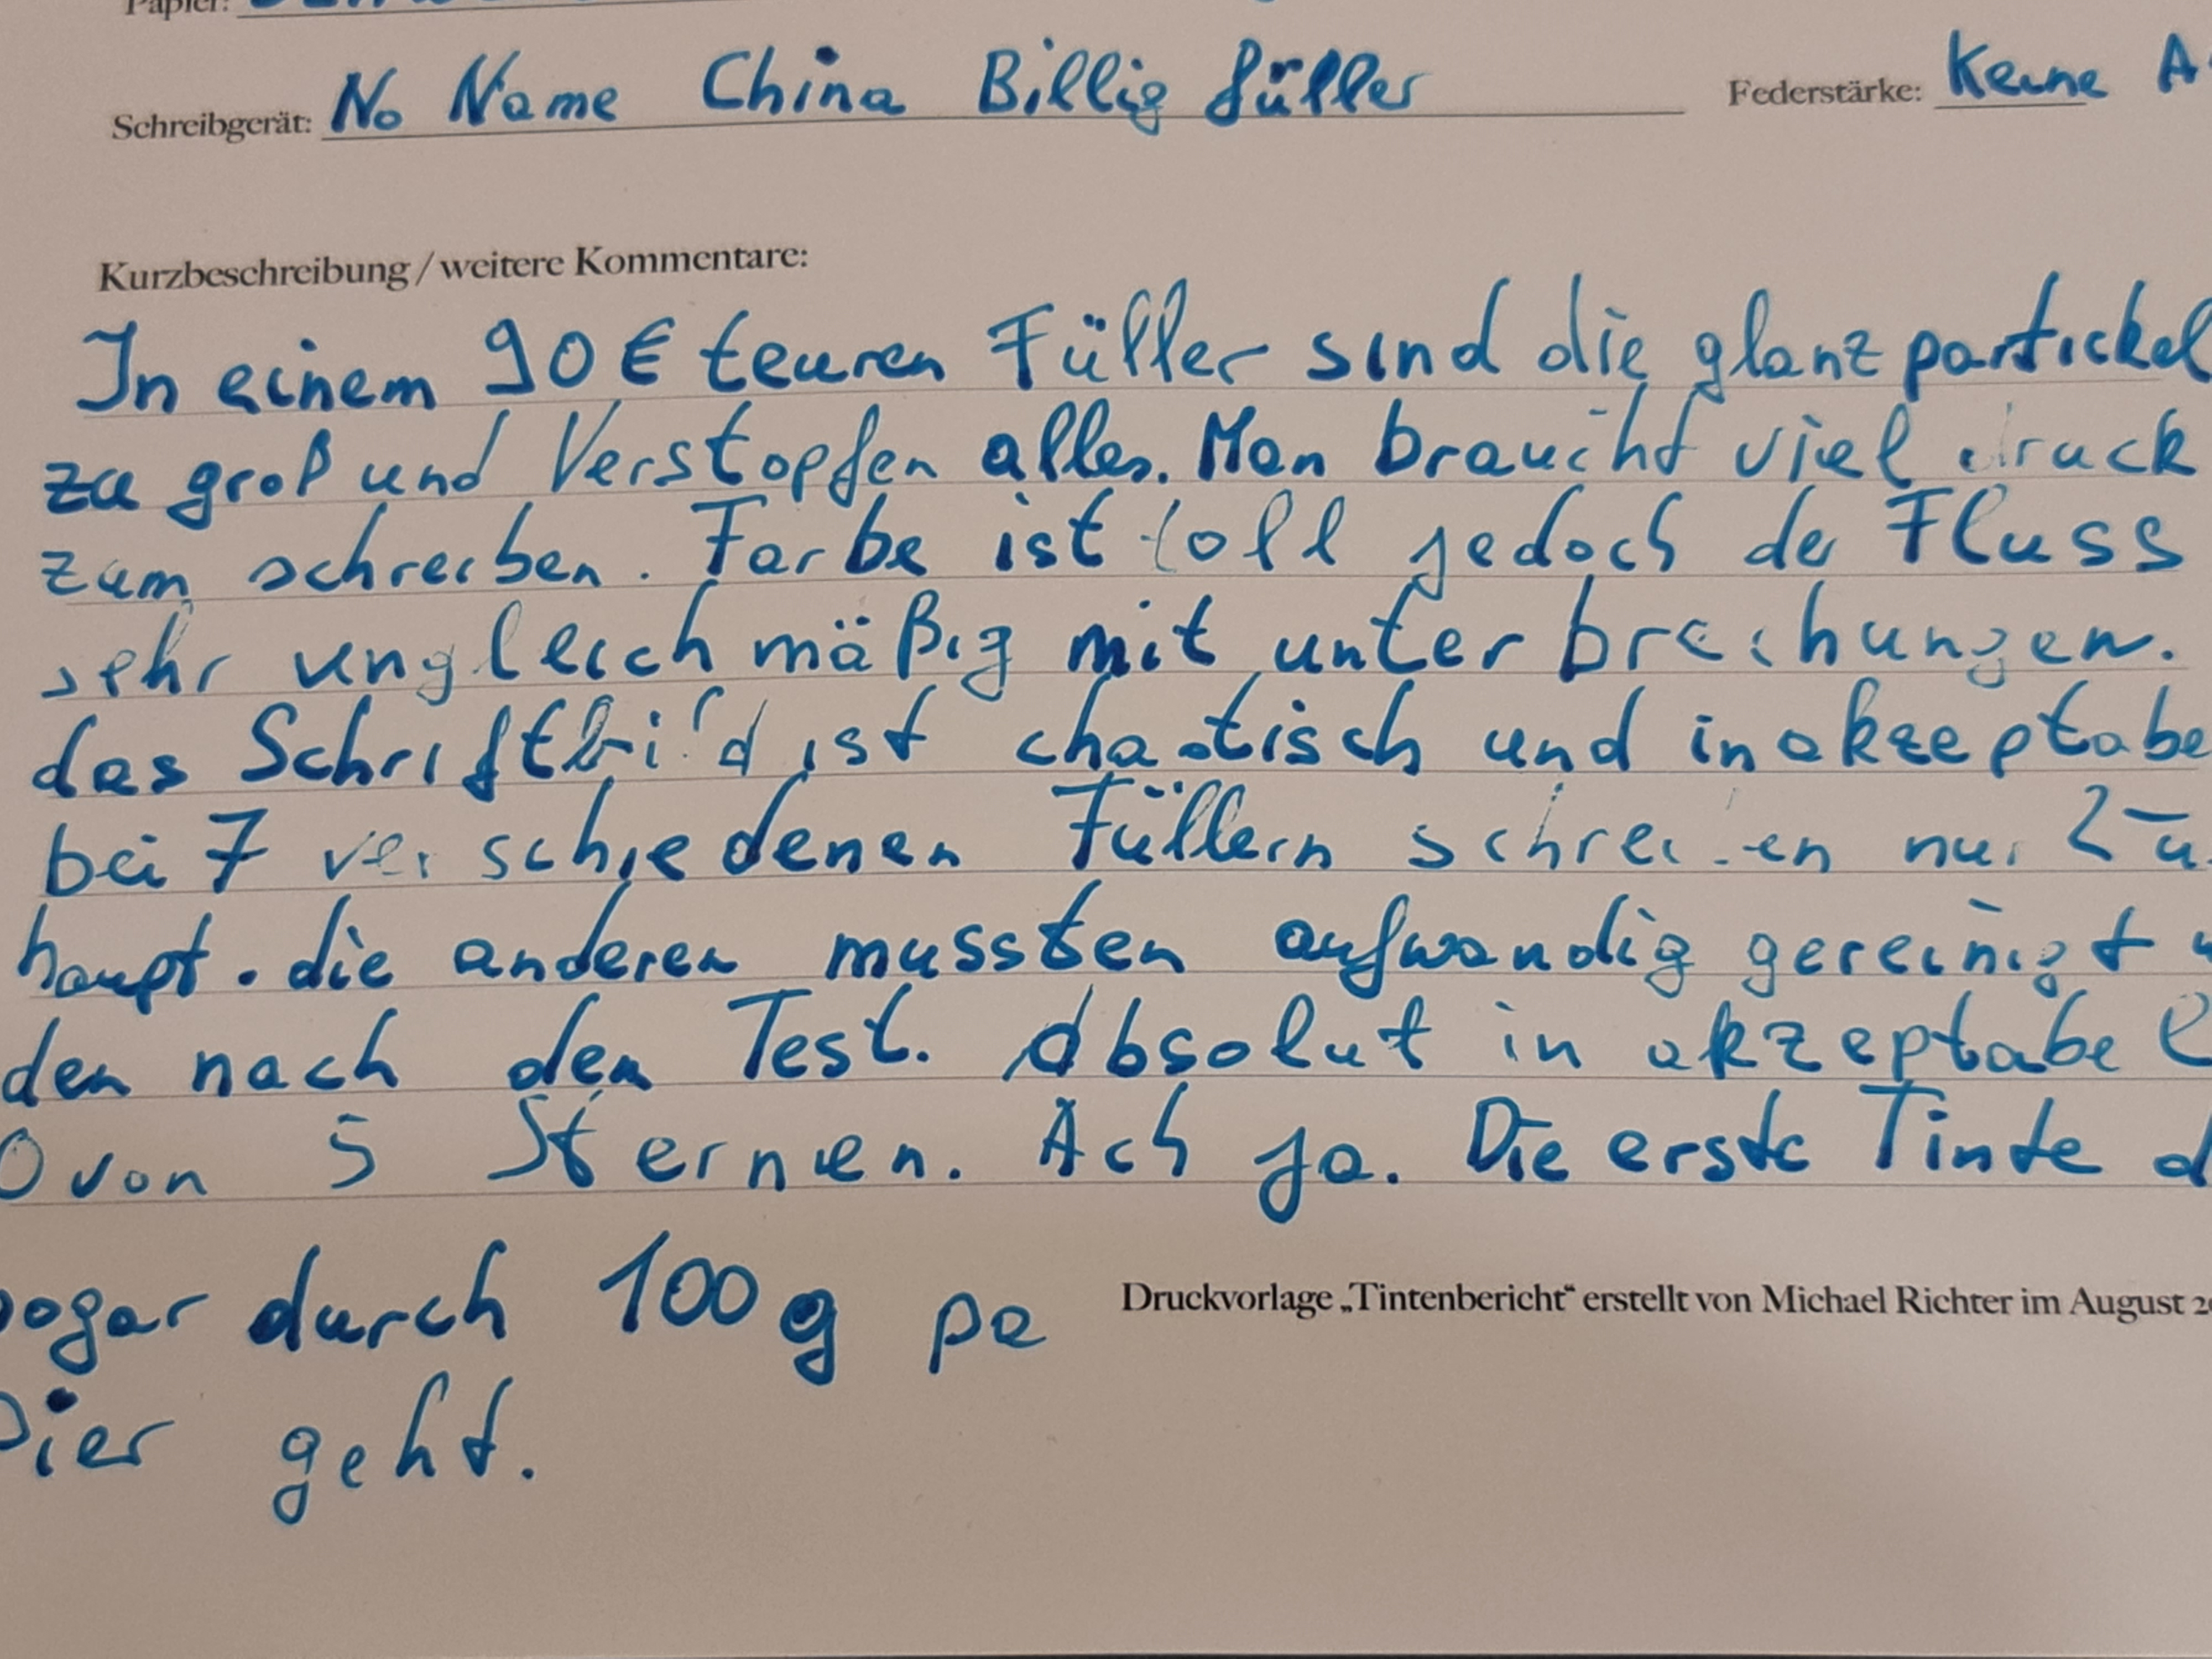 Papier:
Schreibgerät: No Name China Billig füller Federstärke: Keine
Kurzbeschreibung / weitere Kommentare:
In einem 90€ teuren Füller sind die glanzpartickel
zu groß und Verstopfen alles. Man braucht viel druck
zum schreiben. Farbe ist toll jedoch der Fluss
sehr ungleichmäßig mit unterbrechungen.
das Schriftbild ist chaotisch und inakzeptabe
bei 7 verschiedenen Füllern schreiben nur 2 ü
haupt. die anderen mussten aufwändig gereinigt w
den nach dem Test. Absolut in akzeptabel
0 von 5 Sternen. Ach ja. Die erste Tinte d
sogar durch 100g pa
Druckvorlage „Tintenbericht“ erstellt von Michael Richter im August 20
pier geht.